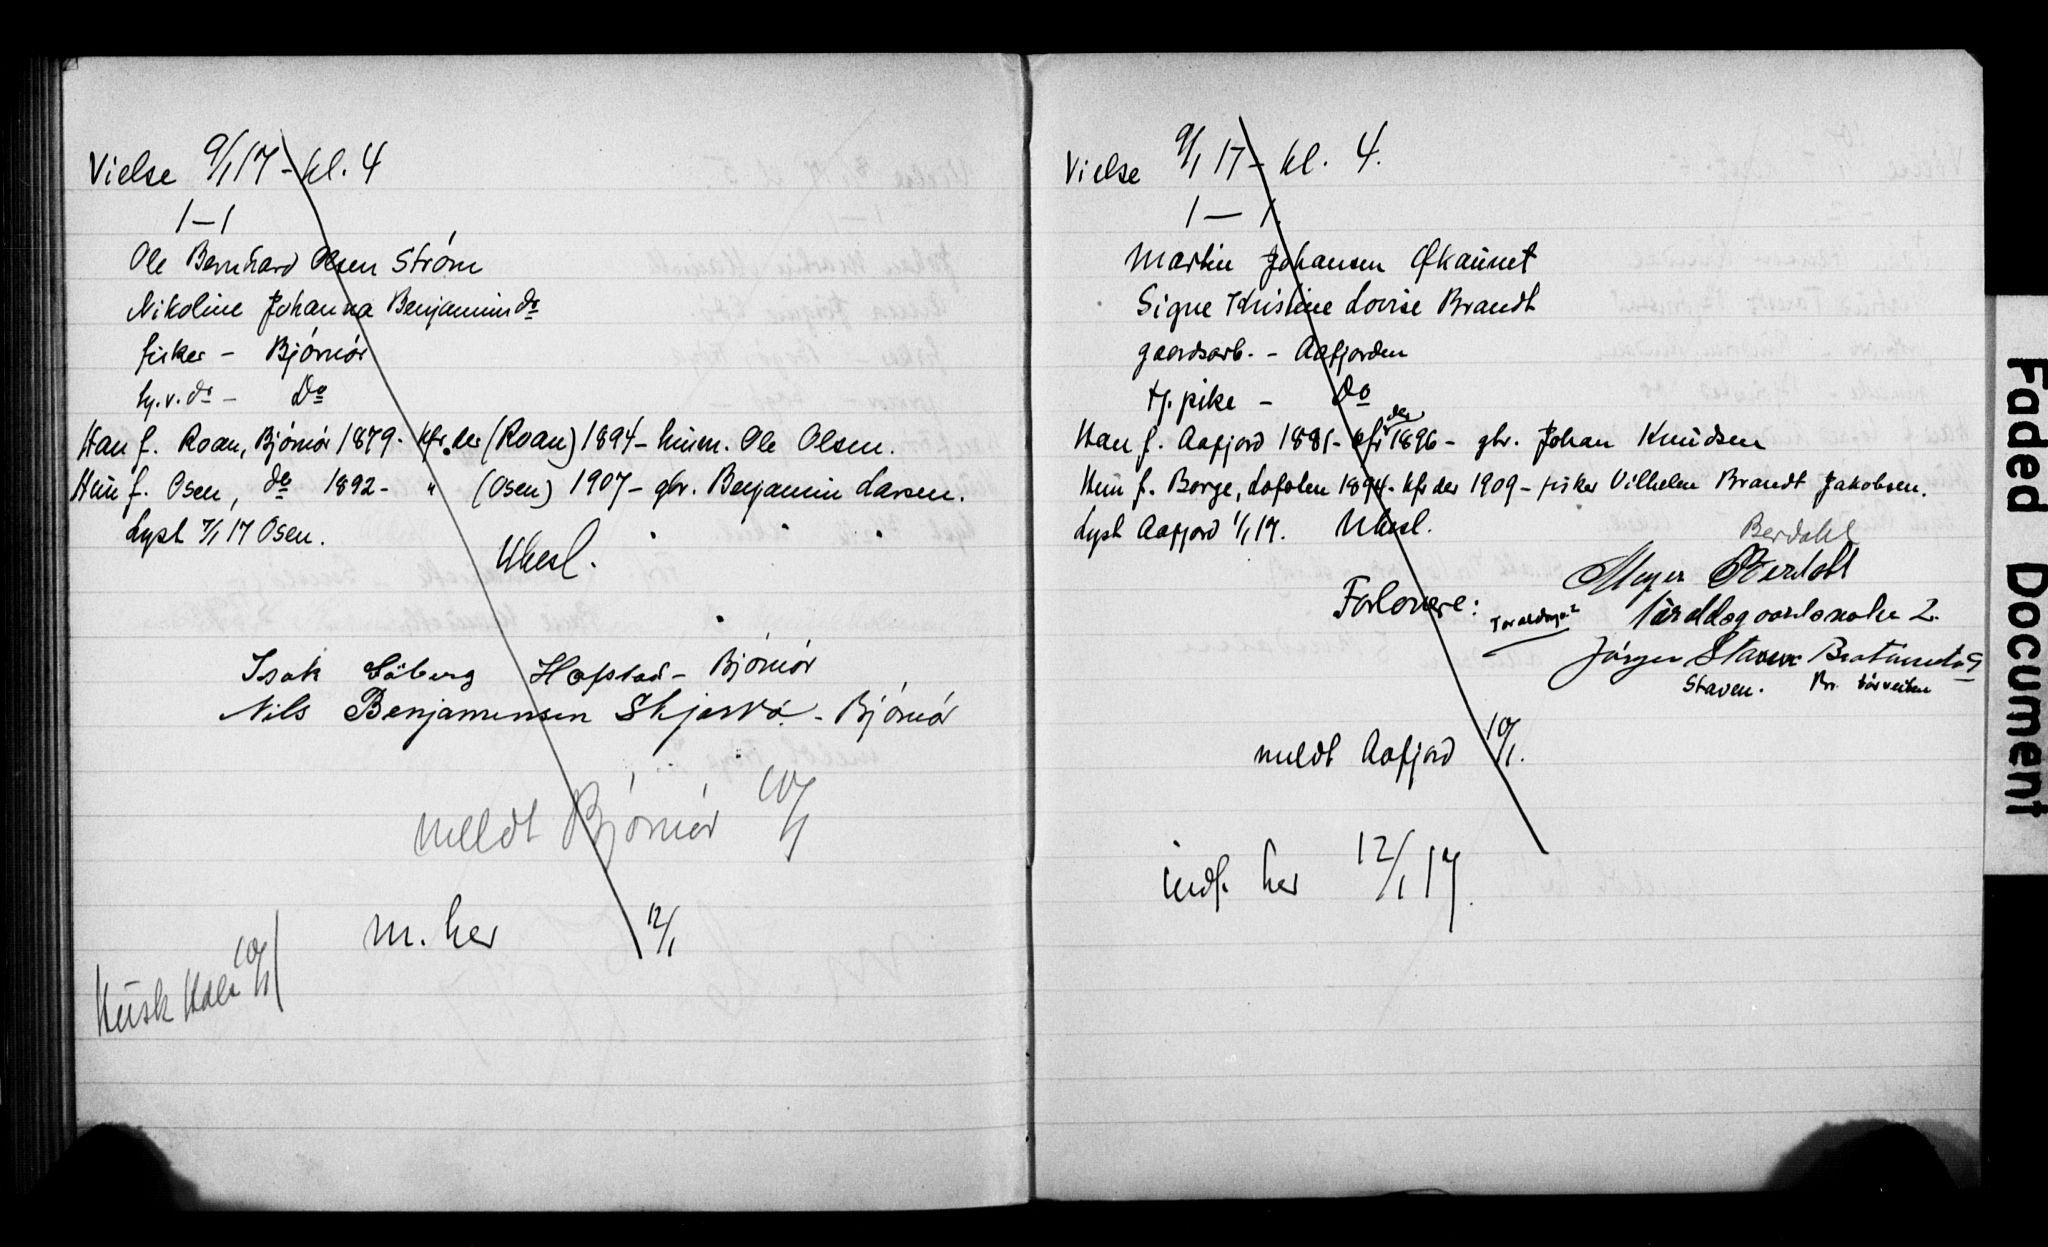 Vielse 9/1 17 - kl. 4
1 - 1
Ole Bernhard Olsen Ström
Nikoline Johanna Benjaminsdr
fisker - Björnör
do
Han f. Roan, Björnör 1879 - kfr. der (Roan) 1894 - husm. Ole Olsen.
Hun f. Osen, do 1892 - " (Osen) 1907 - gbr. Benjamin Larsen.
Lyst 7/1 17 Osen.
Ubesl.
Isak Söberg Hofstad - Björnör
Nils Benjaminsen Skjervö - Björnör
meldt Björnör 10/1
m. her 12/1
Husk 10/1
Vielse 9/1 17 - kl. 4.
1 - 1
Martin Johansen Økaunet
Signe Kristine Lovise Brandt
gaardsarb. - Aafjorden
tj. pike - do
Han f. Aafjord 1881 - kfr der 1896 - gbr. Johan Knudsen
Hun f. Borge, Lofoten 1894 - kfr der 1909 - fisker Vilhelm Brandt Jakobsen.
Lyst Aafjord 1/1 17. Ubesl.
Berdahl
Meyer Berdahl
Forlovere: 2.
Jörgen Staven
Staven.
meldt Aafjord 10/1.
indf. her 12/1 17.
Faded Document